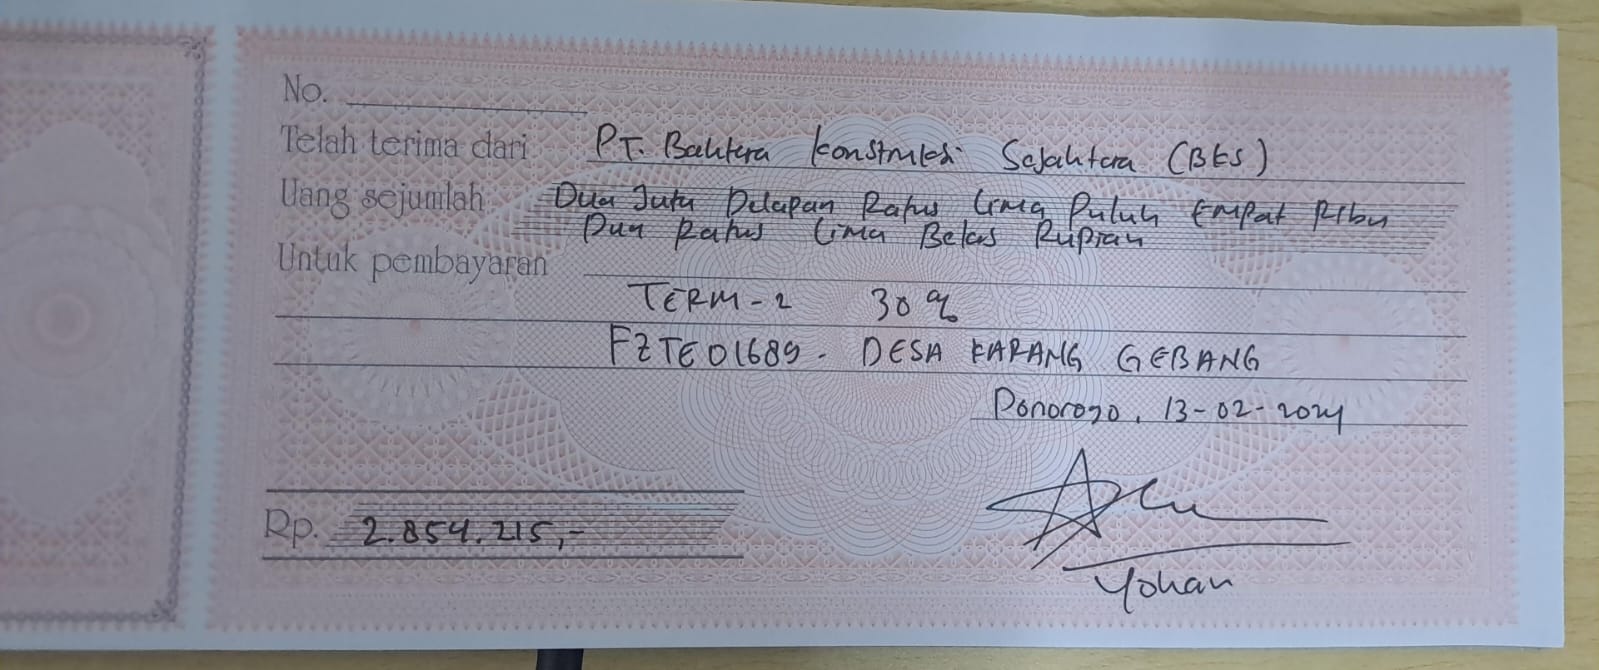 No.
Telah terima dari PT. Bahtera Konstruksi Sejahtera (BKS)
Uang sejumlah Dua Juta Delapan Ratus Lima Puluh Empat Ribu
Dua Ratus Lima Belas Rupiah
Untuk pembayaran
TERM-2 30%
FZTE01689- DESA KARANG GEBANG
Ponorogo, 13-02-2024
Rp. 2.854.215,-
Yohan